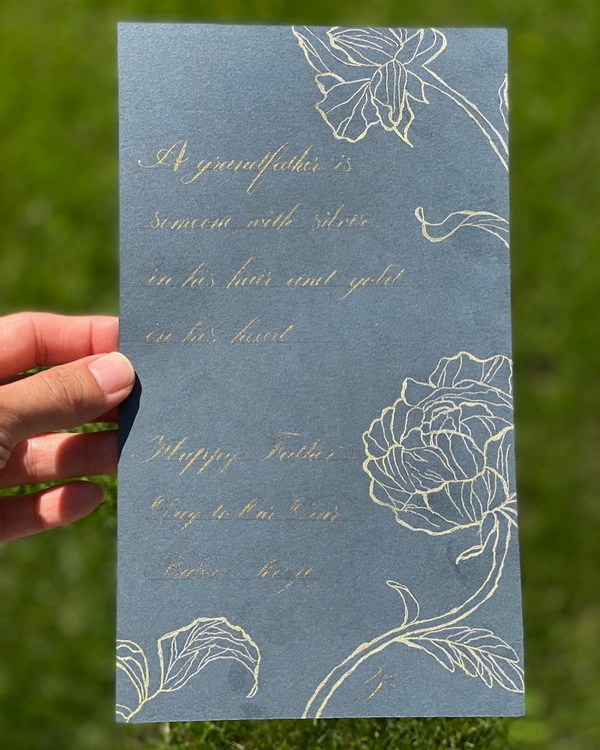 A grandfather is
someone with silver
in his hair and gold
in his heart
Happy Father's
Day to Our Dear